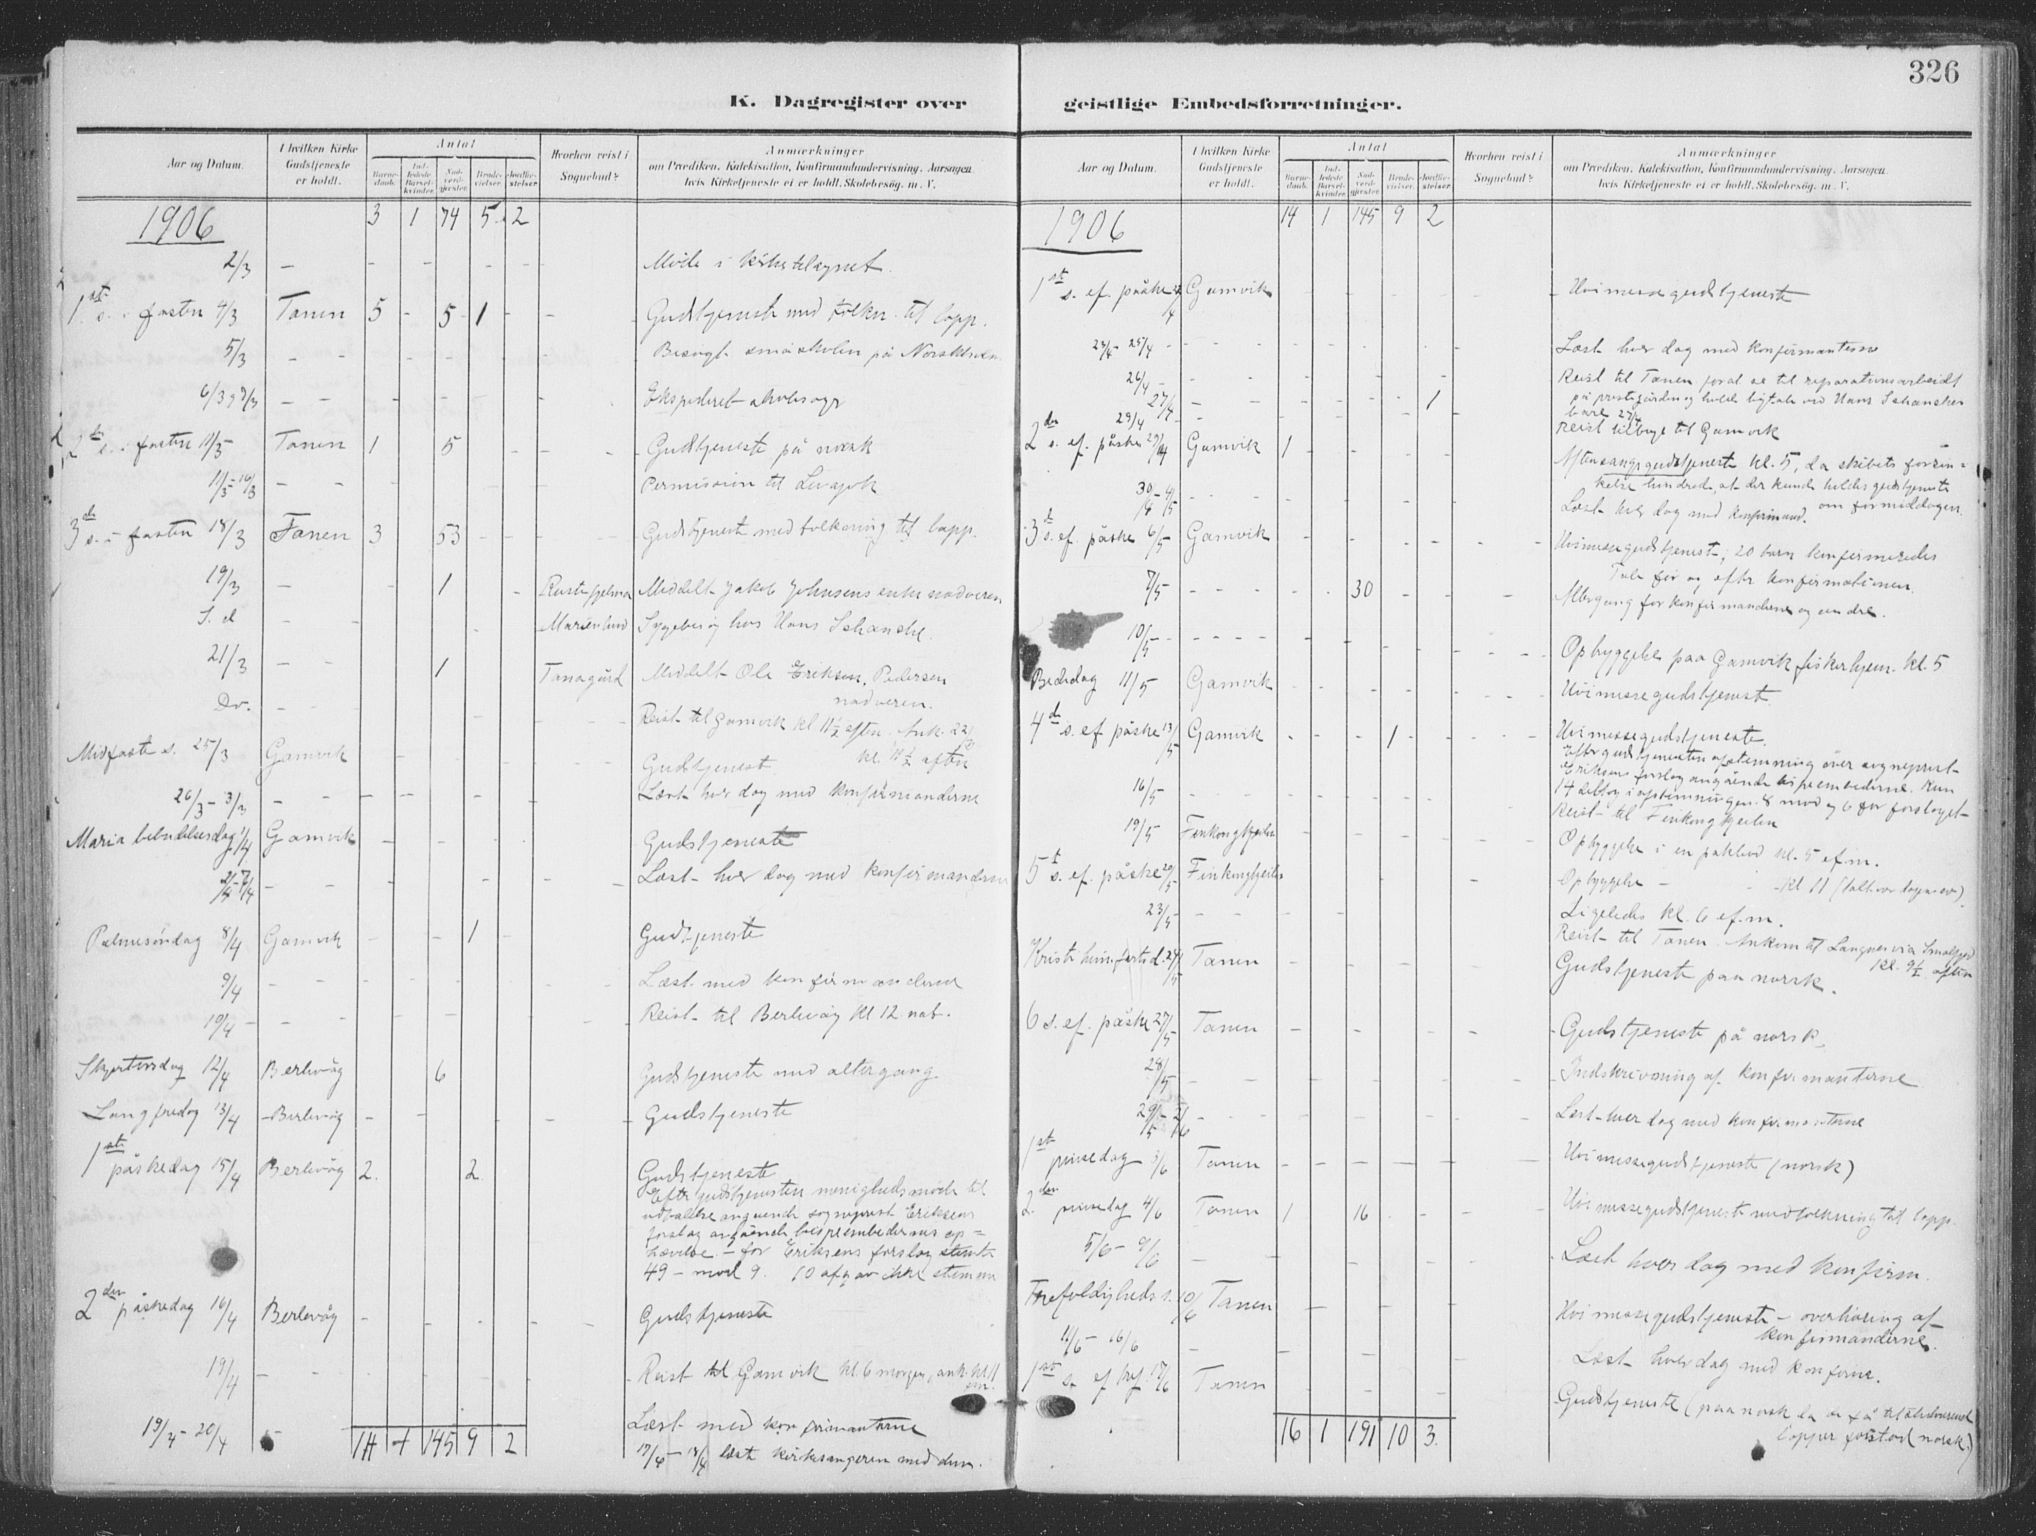 326
K. Dagregister over
Aar og Datum.
I hvilken Kirke Gudstjeneste er holdt.
Antal
Barnedaab.
Indledede Barselkvinder.
Nadverdgjæster.
Brudevielser.
Jordfæstelser.
Hvorhen reist i Sognebud?
Anmærkninger
om Prædiken, Katekisation, Konfirmandundervisning, Aarsagen
hvis Kirketjeneste ei er holdt, Skolebesøg, m. V.
1906 3 1 74 5 2
2/3 – Møde i kirketilsynet.
1ste s. i fasten 4/3 Tanen 5 - 5 1 Gudstjeneste med tolkn. til lapp.
5/3 Besøgt småskolen på
6/3 og 7/3 Ekspederet skolesager
2den s. i fasten 11/3 Tanen 1 5 Gudstjeneste på norsk
11/3 – 16/3 Permission til Levajok
3die s. i fasten 18/3 Tanen 3 53 Gudstjeneste med tolkning til lapp.
19/3 1 Meddelt Jakob Johnsens enke nadveren
S. d Marienlund Sygebesøg hos Hans Schanche.
21/3 1 Tanagård Meddelt Ole Eriksen Pedersen
nadveren.
Do. Reist til Gamvik kl 11½ aften. Ank. 22/3
kl. 11½ aften
Midfaste s. 25/3 Gamvik Gudstjenest
26/3 – 31/3 Læst hver dag med konfirmanderne
Maria bebudelsesdag 1/4 Gamvik Gudstjeneste
2/4 – 7/4 Læst hver dag med konfirmanderne
Palmesøndag 8/4 Gamvik 1 Gudstjeneste
9/4 Læst med konfirmanderne
10/4 Reist til Berlevåg kl 12 nat.
Skjærtorsdag 12/4 Berlevåg 6 Gudstjeneste med altergang
Langfredag 13/4 Berlevåg Gudstjeneste
1ste påskedag 15/4 Berlevåg 2 2 Gudstjeneste
Efter gudstjenesten menighedsmøde til
udtalelse angående sogneprest Eriksens
forslag angående bispeembedernes op=
hævelse – for Eriksens forslag stemte
49 – mod 9. 10 afgav ikke stemme
2den påskedag 16/4 Berlevåg Gudstjeneste
19/4 Reist til Gamvik kl. 6 morgen, ank. kl. 11
em.
19/4 – 20/4 Læst med konfirmanterne
14 1 145 9 2 17/4 – 18/4 læste kirkesangeren med dem.
geistlige Embedsforretninger.
Aar og Datum.
I hvilken Kirke Gudstjeneste er holdt.
Antal
Barnedaab.
Indledede Barselkvinder.
Nadverdgjæster.
Brudevielser.
Jordfæstelser.
Hvorhen reist i Sognebud?
Anmærkninger
om Prædiken, Katekisation, Konfirmandundervisning, Aarsagen
hvis Kirketjeneste ei er holdt, Skolebesøg, m. V.
1906 14 1 145 9 2
1ste s. ef. påske 22/4 Gamvik Høimessegudstjeneste
23/4 – 25/4 Læst hver dag med konfirmanterne
26/4 Reist til Tanen for at se til reparationsarbeidet
27/4 1 på prestegården og holde ligtale ved Hans Schanches
båre 27/4
29/4 Reist tilbage til Gamvik
2den s. ef. påske 29/4 Gamvik 1 Aftensangsgudstjeneste kl. 5, da skibets forsin=
kelse hindrede, at der kunde holdes gudstjeneste
om formiddagen.
30/4 – 4/5 Læst hver dag med konfirmand.
3die s. ef. påske 6/5 Gamvik Høimessegudstjenest; 20 barn konfirmeredes
Tale før og efter konfirmationen.
7/5 30 Altergang for konfirmanderne og andre.
10/5 Opbyggelse paa Gamvik fiskerhjem kl. 5
Bededag 11/5 Gamvik Høimessegudstjenest
4de s. ef påske 13/5 Gamvik 1 Høimessegudstjeneste.
Efter gudstjenesten afstemning over sogneprest
Eriksens forslag angående bispeembederne. Kun
14 deltog i afstemningen. 8 mod og 6 for forslaget
16/5 Reist til Finkongkjeilen
19/5 Finkongkjeilen Opbyggelse i en pakbod kl. 5 ef.m.
5te s. ef. påske 20/5 Finkongkjeilen Opbyggelse – kl 11
Ligeledes kl. 6 ef.m.
23/5 Reist til Tanen. Ankom til Langnes via Smalfjord
kl. 9½ aften
Kristi himmelfartsd. 24/5 Tanen Gudstjeneste paa norsk.
6 s. ef. påske 27/5 Tanen Gudstjeneste på norsk.
28/5 Indskrivning af konfirmanterne
29/5 – 2/6 Læst hver dag med konfirmanterne
1ste pinsedag 3/6 Tanen Høimessegudstjeneste (norsk)
2den pinsedag 4/6 Tanen 1 16 Høimessegudstjeneste med tolkning til lapp.
5/6 – 9/6 Læst hver dag med konfirm.
Trefoldigheds s. 10/6 Tanen Høimessegudstjeneste – overhøring af
konfirmanderne.
11/6 – 16/6 Læst hver dag med konfirm.
1ste s. ef tref. 17/6 Tanen Gudstjeneste (paa norsk da de få tilstedeværende
lapper forstod norsk.)
16 1 191 10 3